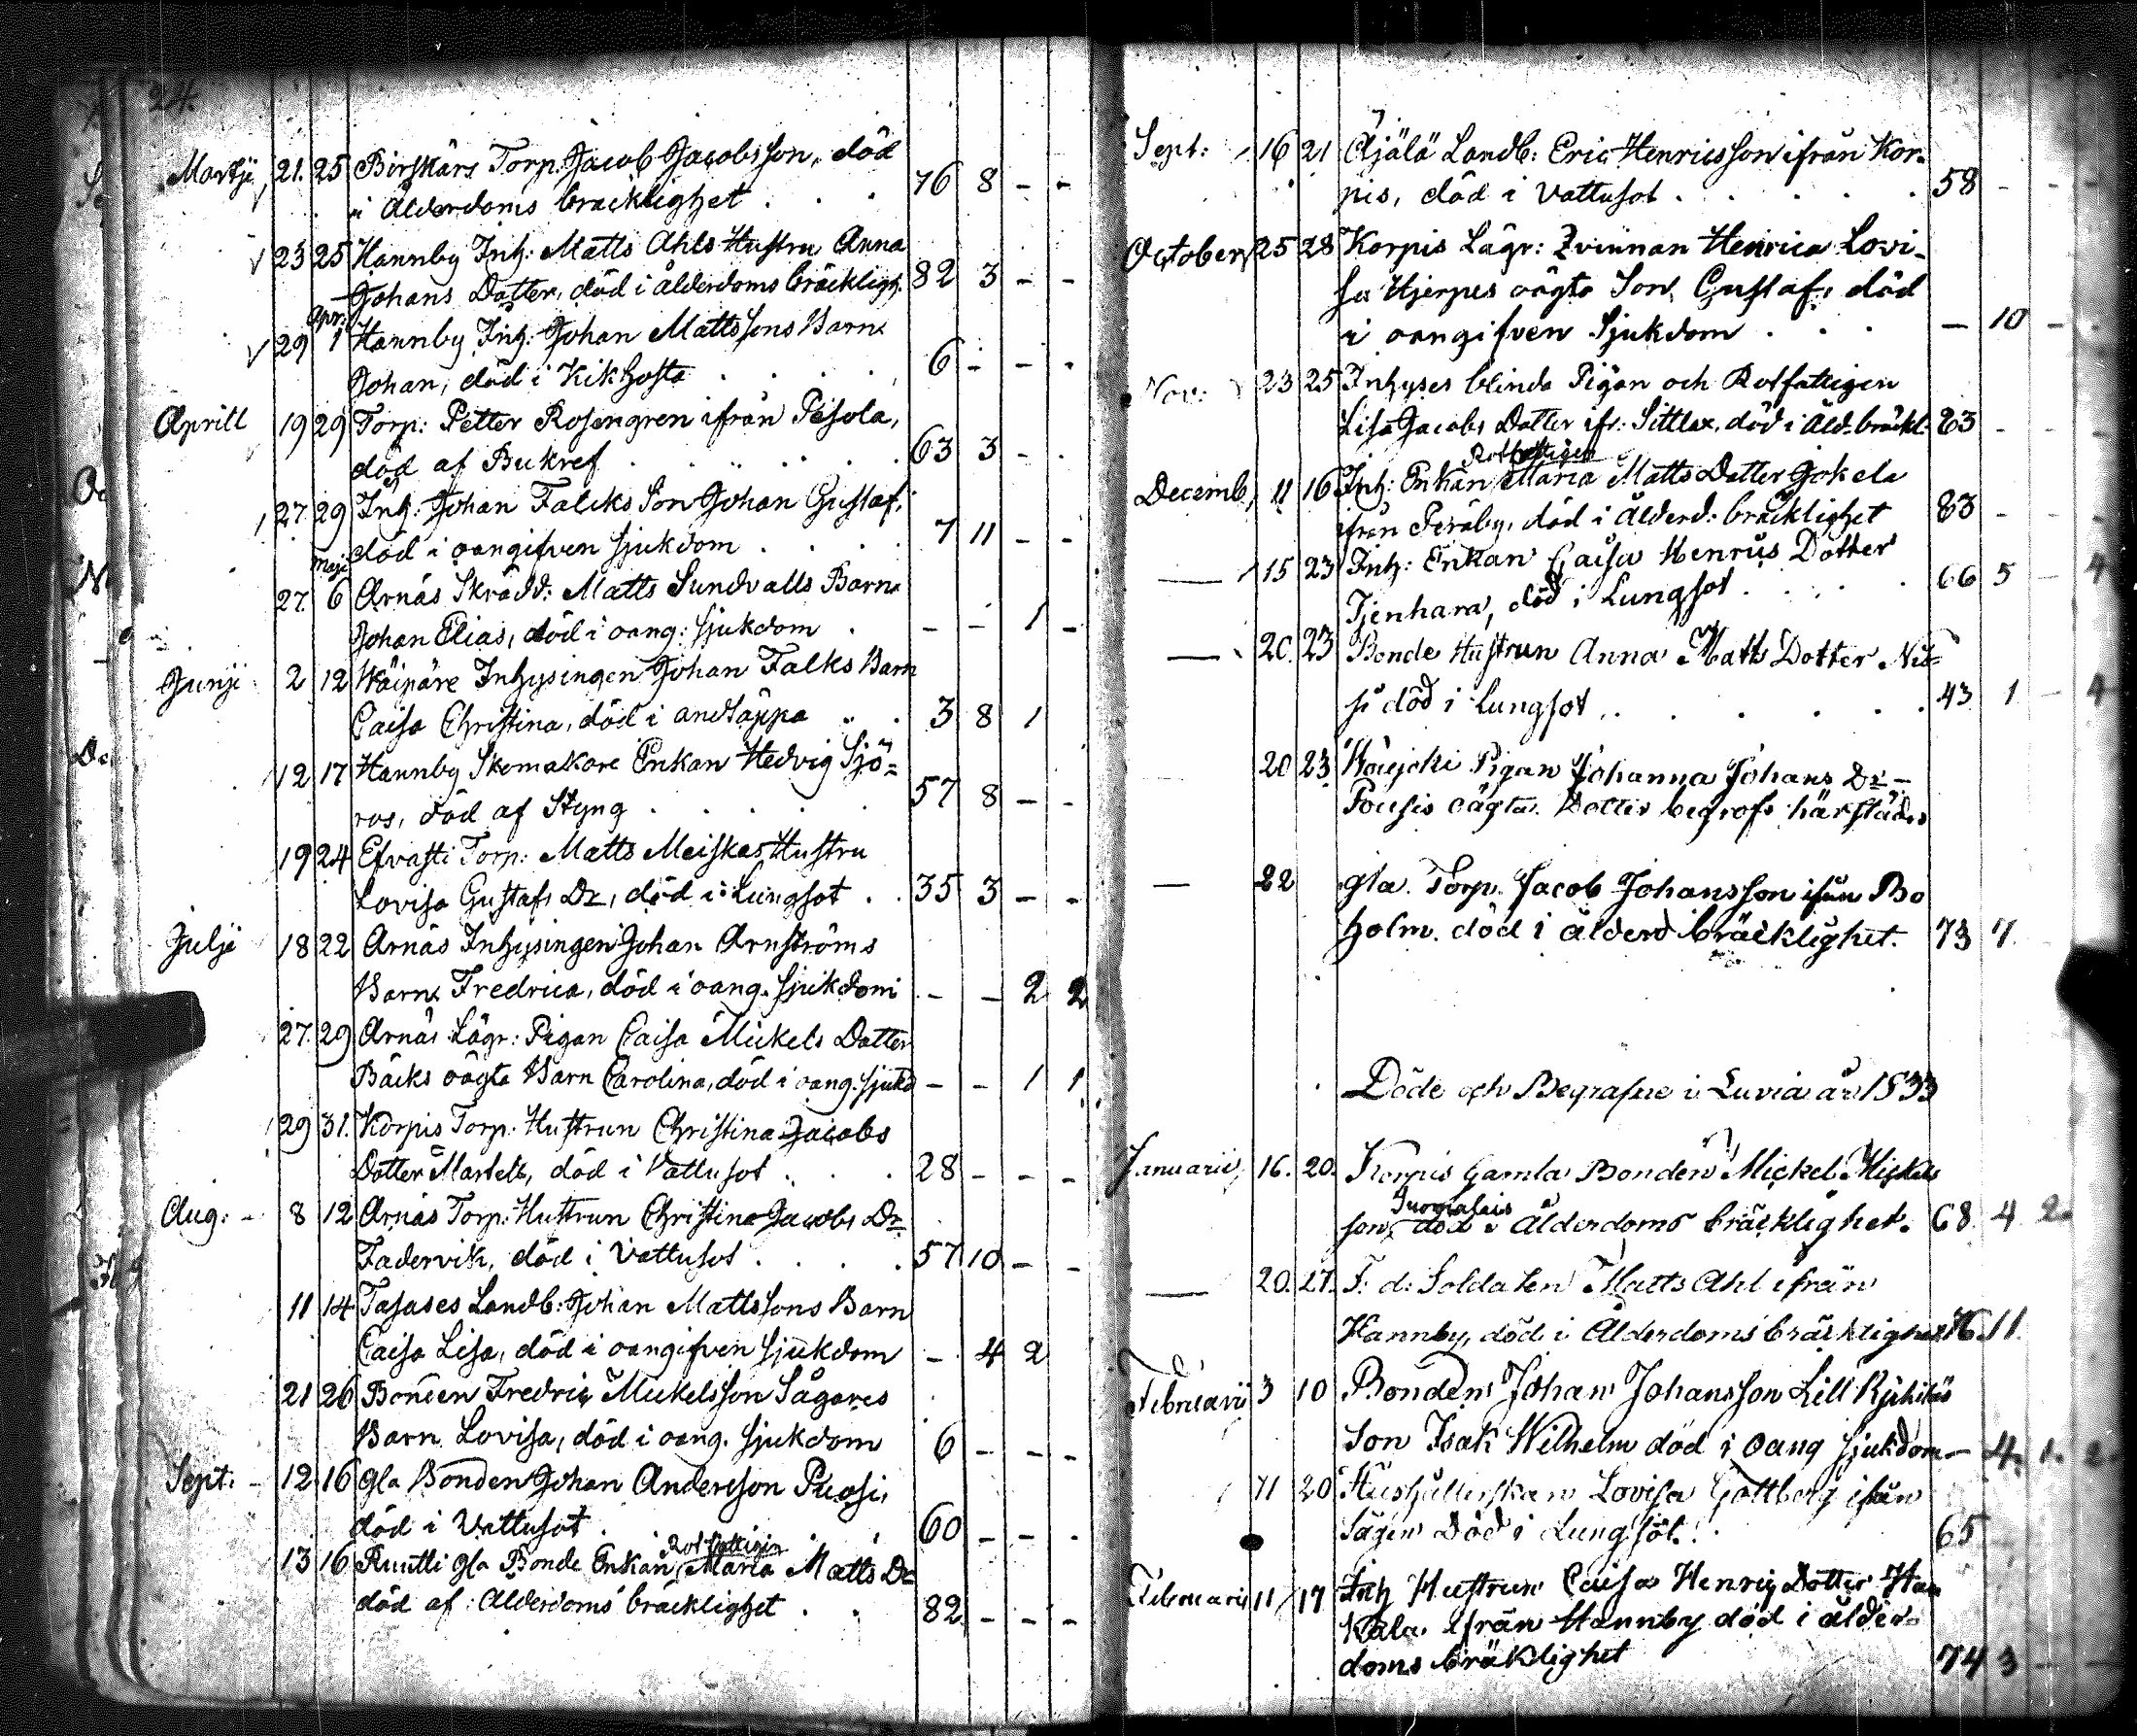 24.
Martji 21. 25 Birskärs Torp: Jacob Jacobsson, död
i Ålderdoms bräcklighet . . . 76 8 - -
23 25 Hannby Inh: Matts Ahls Hustru Anna
Johans Dotter, död i ålderdoms bräckligh. 82 3 - -
Apr:
29 1 Hannby Inh: Johan Mattssons Barn
Johan, död i Kikhosta . . . . 6 - - -
Aprill 19 29 Torp: Petter Rosengren ifrån Pesola,
död af Bukref . . . . . 63 3 - .
27. 29 Inh: Johan Falcks Son Johan Gustaf,
död i oangifven sjukdom . . . . 7 11 - -
Maji
27. 6 Arnäs Skrädd: Matts Sundvalls Barn
Johan Elias, död i oang: sjukdom . - - 1 -
Junji 2 12 Wäipäre Inhysingen Johan Falks Barn
Caisa Christina, död i andtäppa . . 3 8 1
12 17 Hannby Skomakare Enkan Hedvig Sjö=
ros, död af Styng . . . . . 57 8 - -
19 24 Efvasti Torp: Matts Meiskas Hustru
Lovisa Gustafs Dr, död i Lungsot . . 35 3 - -
Julji 18 22 Arnäs Inhysingen Johan Arnströms
Barn Fredrica, död i oang. sjukdom - - 2 2
27. 29 Arnäs Lägr: Pigan Caisa Mickels Dotter
Bäcks oägta Barn Carolina, död i oang. sjukd - - 1 1
29 31. Korpis Torp: Hustrun Christina Jacobs
Dotter Martels, död i Vattusot . . . 28 - - -
Aug: - 8 12 Arnäs Torp: Hustrun Christina Jacobs Dr
Fadervik, död i Vattusot . . . . 57 10 - -
11 14 Tasases Landb: Johan Mattssons Barn
Caisa Lisa, död i oangifven sjukdom - 4 2
21 26 Bonden Fredric Mickelsson Sågares
Barn Lovisa, död i oang. sjukdom 6 - - -
Sept: - 12 16 Gla Bonden Johan Andersson Puosi,
död i Vattusot . . . 60 - - -
Rotfattigen
13 16 Ruutti gla Bonde Enkan Maria Matts Dr
död af Ålderdoms bräcklighet . . 82 - - -
Sept: 16 21 Äjälä Landb: Eric Henricsson ifrån Kor-
pis, död i Vattusot . . . . . 58 - - -
October 25 28 Korpis Lägr: Qvinnan Henrica Lovi-
sa Hjerpes oägta Son Gustaf, död
i oangifven Sjukdom . . . - 10 - .
Nov: 23 25 Inhyses blinda Pigan och Rotfattigen
Lisa Jacobs Dotter ifr: Sittlax, död i Åld. bräckl. 83 - - -
Rotfattigen
Decemb, 11 16 Inh: Enkan Maria Matts Dotter Jokela
ifrån Peräby, död i Ålderd: bräcklighet 83 - -
— 15 23 Inh: Enkan Caisa Henrics Dotter
Tjenhara, död i Lungsot . . . . 66 5 - 4
— 20. 23 Bonde Hustrun Anna Matts Dotter
död i Lungsot . . . . . . 43 1 - 4
20 23 Pigan Johanna Johans Dr
oägta Dotter begrofs härstädes
— 22 gla. Torp. Jacob Johansson ifrån Bo
holm. död i ålderd bräcklighet. 73 7
Döde och Begrafne i Luvia år 1833
Januarii, 16. 20. Korpis Gamla Bonden Mickel Mickels
son, död i Ålderdoms bräcklighet. 68. 4 2.
— 20. 27. F: d: Soldaten Matts Ahl ifrån
Hannby, död i Ålderdoms bräcklighet 76. 11.
Februarii 3 10 Bonden Johan Johansson Lill
Son Isak Wilhelm död i oang sjukdom - 4. 1. 2
11 20 Hushållerskan Lovisa Gottberg ifrån
Sågen Död i Lungsot. . 65
Februarii 11 17 Inh Hustrun Caisa Henrics Dotter Han
kala ifrån Hannby död i ålder-
doms bräklighet 74 3 - -